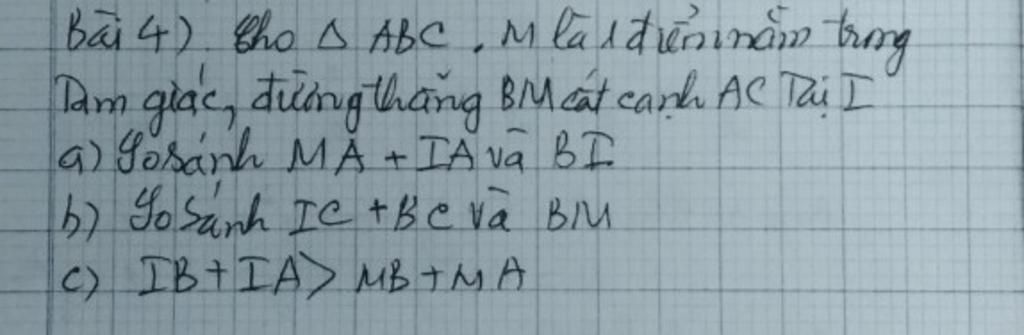 Bài 4). Cho Δ ABC. M là 1 điểm nằm trong
Tam giác, đường thẳng BM cắt cạnh AC Tại I
a) So sánh MA + IA và BI
b) So Sánh IC + BC và BM
c) IB + IA > MB + MA